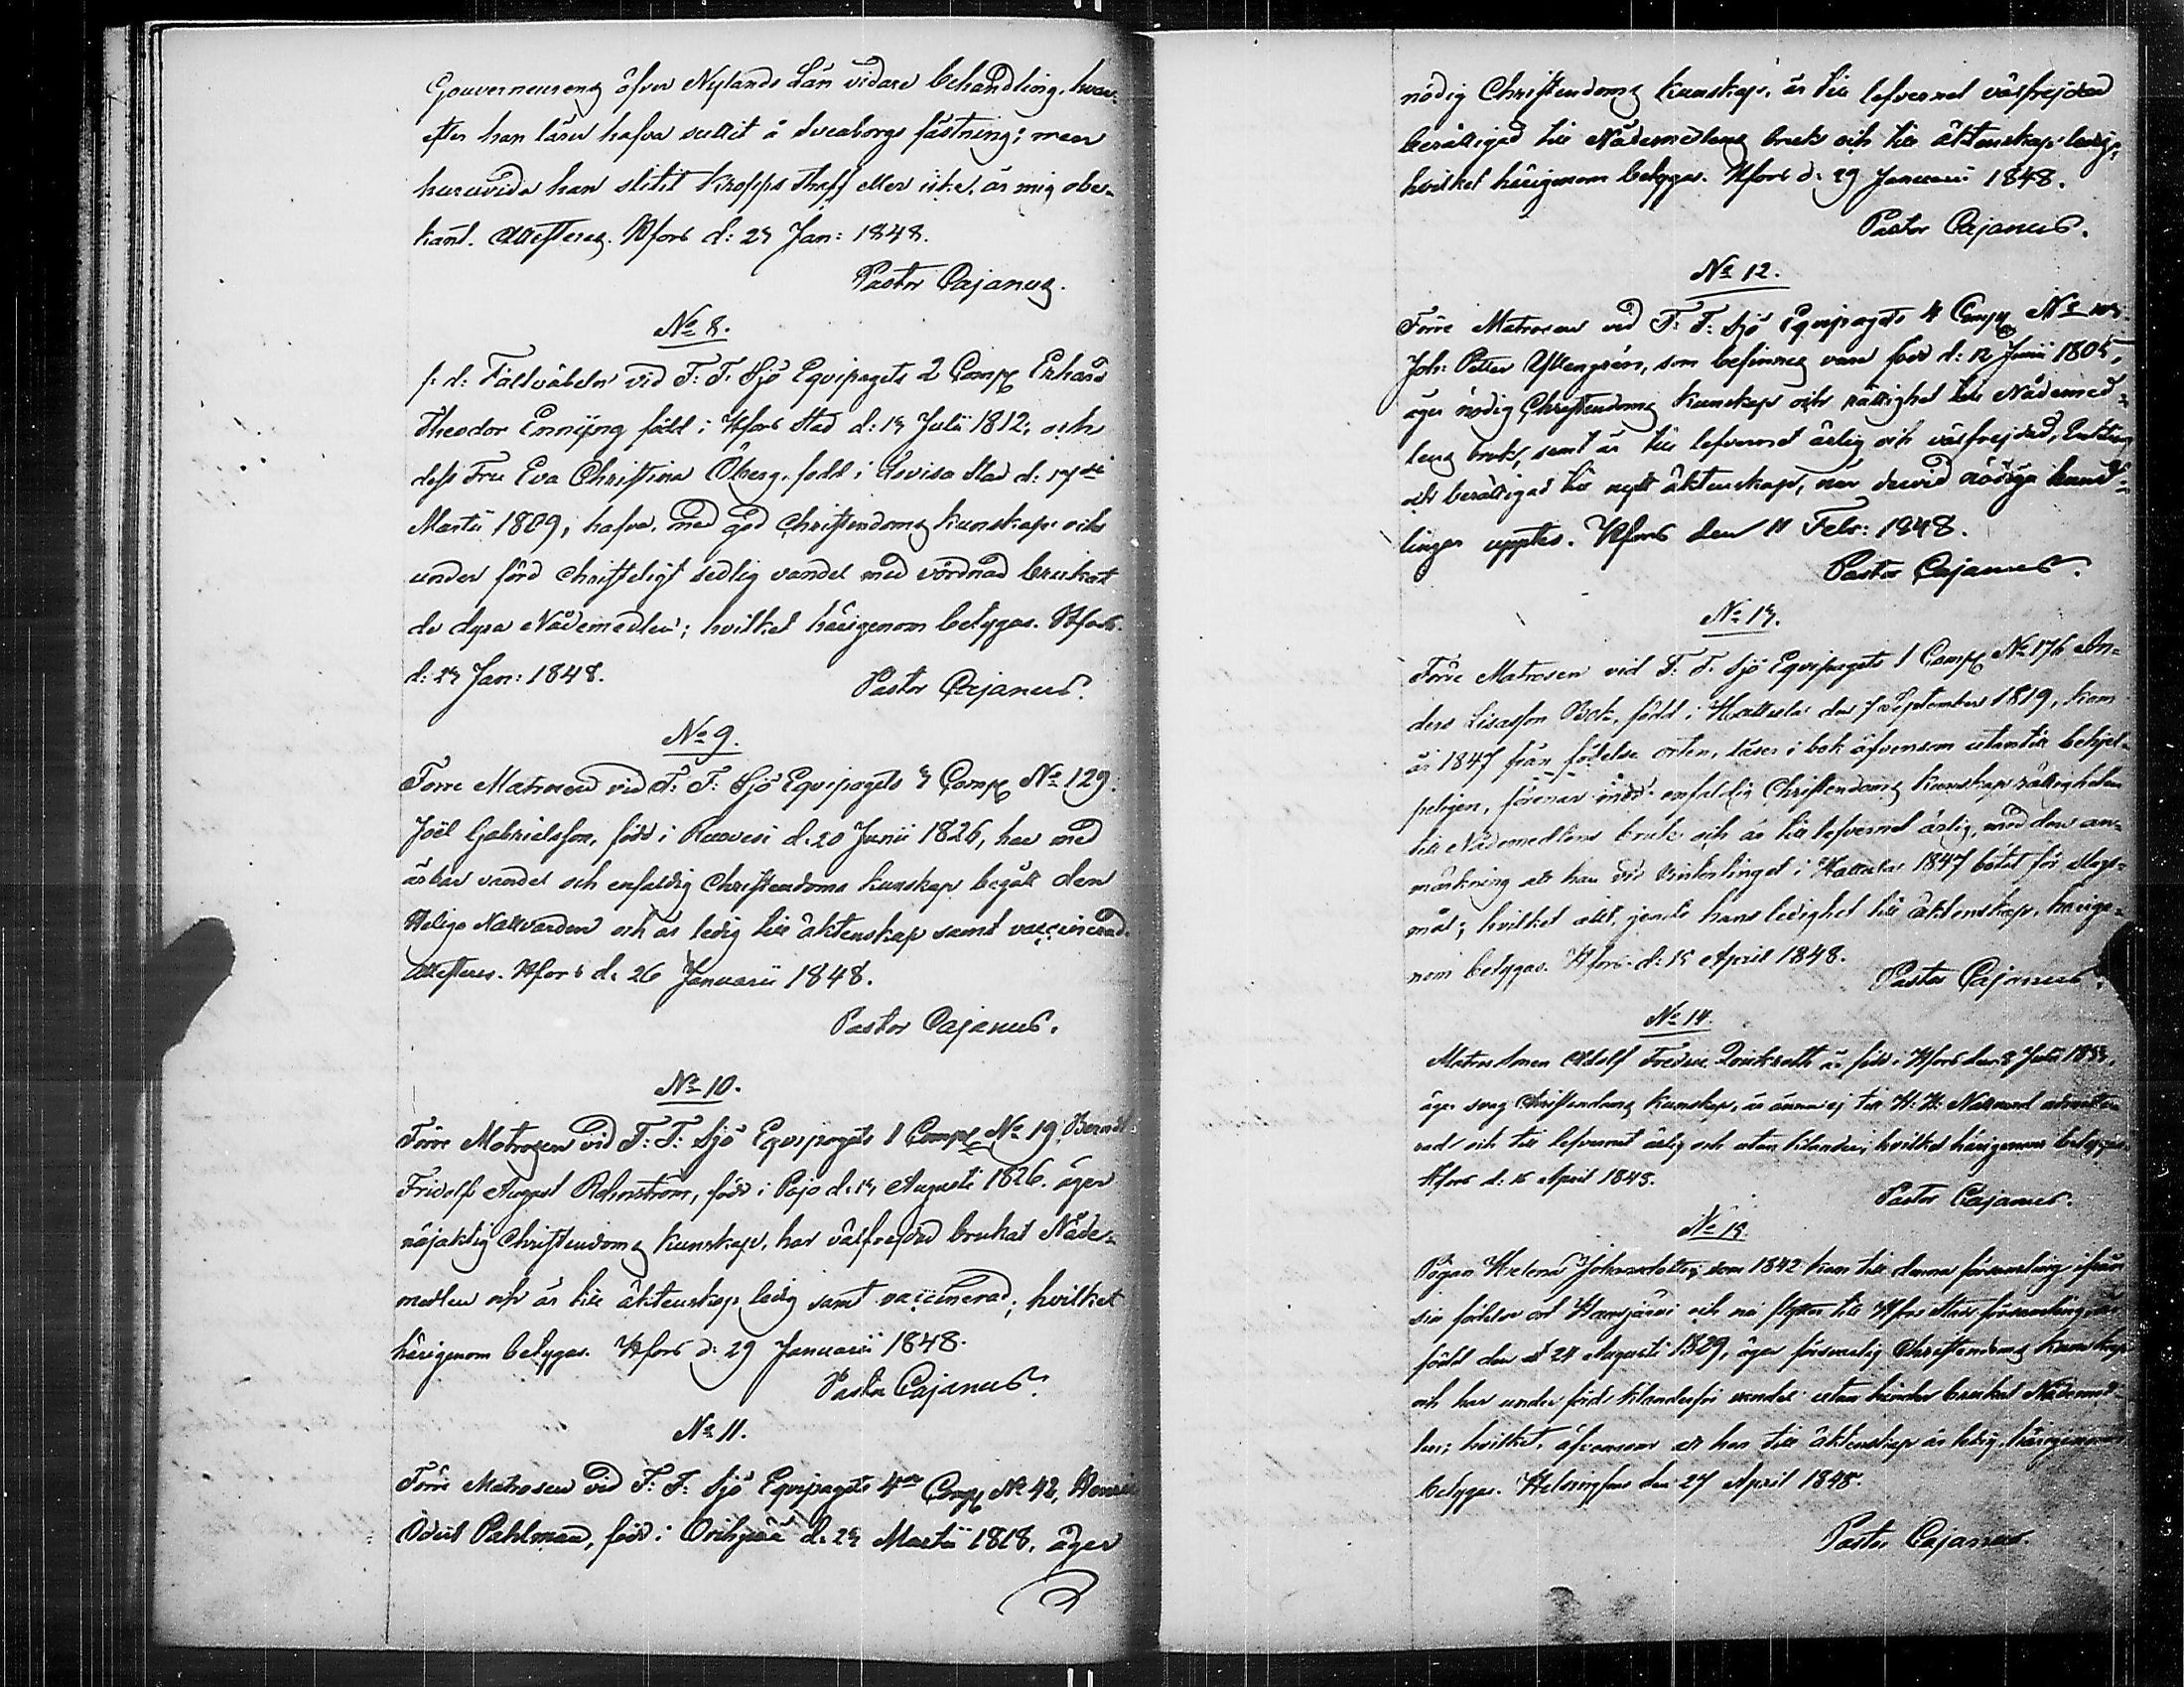 Gouverneurens öfver Nylands Län vidare behandling, hvar-
efter han lärer hafva suttit å Sveaborgs fästning; men
huruvida han slitit kropps straff eller icke, är mig obe-
kant. Attesteras. Hfors d: 23 Jan: 1848.
Pastor Cajanus.
No 8.
f: d: Fältväbeln vid F: F: Sjö Eqvipagets 2 Comp Erhard
Theodor född i Hfors Stad d: 13 Julii 1812, och
dess Fru Eva Christina Öberg, född i Lovisa Stad d: 17de
Martii 1809, hafva, med god Christendoms kunskap och
under förd christeligt sedlig vandel med vördnad brukat
de dyra Nådemedlen; hvilket härigenom betygas. Hfors.
d: 23 Jan: 1848.
Pastor Cajanus.
No 9.
Förre Matrosen vid F: F: Sjö Eqvipagets 3 Comp No 129.
Joël Gabrielsson, född i Ruovesi d. 20 Junii 1826, har med
ärbar vandel och enfaldig Christendoms kunskap begått den
Heliga Nattvarden och är ledig till äktenskap samt vaccinerad.
Attesteras. Hfors d. 26 Januarii 1848.
Pastor Cajanus.
No 10.
Förre Matrosen vid F: F: Sjö Eqvipagets 1 Comp No 19, Berndt
Fridolf August Holmström, född i Pojo d. 13 Augusti 1826. äger
nöjaktig Christendoms kunskap, har välfrejdad brukat Nåde-
medlen och är till äktenskap ledig samt vaccinerad; hvilket
härigenom betygas. Hfors d: 29 Januarii 1848.
Pastor Cajanus.
No 11.
Förre Matrosen vid F: F: Sjö Eqvipagets 4de Comp No 42,
Pahlman, född i Orihpää d. 23 Martii 1818, äger
nödig Christendoms kunskap, är till lefvernet välfrejdad
berättigad till Nådemedlens bruk och till äktenskap ledig,
hvilket härigenom betygas. Hfors d: 29 Januarii 1848.
Pastor Cajanus.
No 12.
Förre Matrosen vid F: F: Sjö Eqvipagets 4 Comp No
Joh: Petter, som befinnes vara född d: 12 Junii 1805,
äger nödig Christendoms kunskap och rättighet till Nådemed-
lens bruk, samt är till lefvernet ärlig och välfrejdad, Enkling
och berättigad till nytt äktenskap, när dervid nödiga hand-
lingar uppter. Hfors den 11 Febr: 1848.
Pastor Cajanus.
No 13.
Förre Matrosen vid F: F: Sjö Eqvipagets 1 Comp No 176 An-
ders Lisasson Bok, född i Hattula den 7 September 1819, kom
år 1847 från födelse orten, läser i bok äfvensom utantill behjel-
peligen, förenar med enfaldig Christendoms kunskap rättigheten
till Nådemedlens bruk och är till lefvernet ärlig, med den an-
märkning att han vid Vintertinget i Hattula 1847 bötat för slags-
mål; hvilket allt, jemte hans ledighet till äktenskap, härige-
nom betygas. Hfors d: 15 April 1848.
Pastor Cajanus.
No 14.
Adolf Fredric är född i Hfors den 8 Julii
äger svag Christendoms kunskap, är ännu ej till H: H: Nattvard admitte-
rad och till lefvernet ärlig och utan klander; hvilket härigenom betygas.
Hfors d: 15 April 1848.
Pastor Cajanus.
No 15.
Pigan Helena Johansdotter, som 1842 kom till denna församling ifrån
sin födelse ort och nu flyttar till Hfors Stads församling är
född den 24 Augusti 1829, äger försvarlig Christendoms kunskap
och har under förd klanderfri vandel utan hinder brukat Nådemed-
len; hvilket, äfvensom att hon till äktenskap är ledig, härigenom
betygas. Helsingfors den 27 April 1848.
Pastor Cajanus.